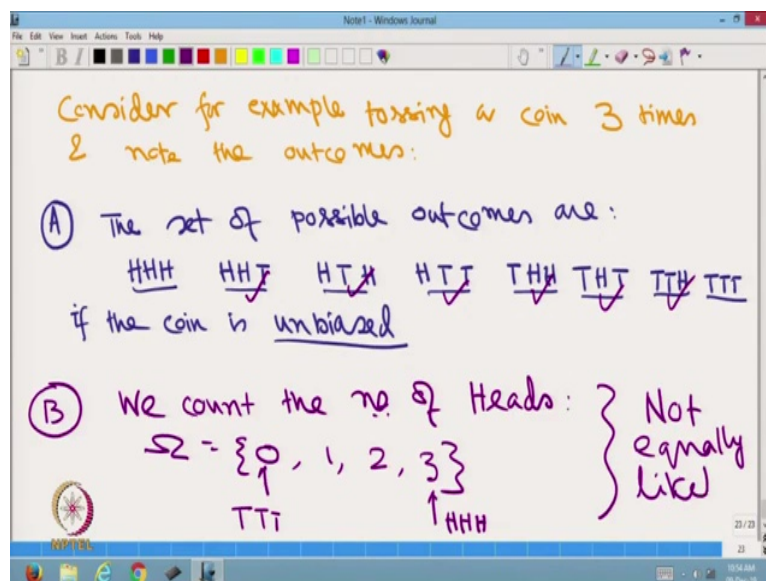 Note1 - Windows Journal
File Edit View Insert Actions Tools Help
Consider for example tossing a coin 3 times
& note the outcomes:
(A) The set of possible outcomes are:
HHH HHT HTH HTT THH THT TTH TTT
if the coin is unbiased
(B) We count the no of Heads:
Ω = {0, 1, 2, 3}
TTT HHH
Not
equally
likel
NPTEL
23/23
23
10:54 AM